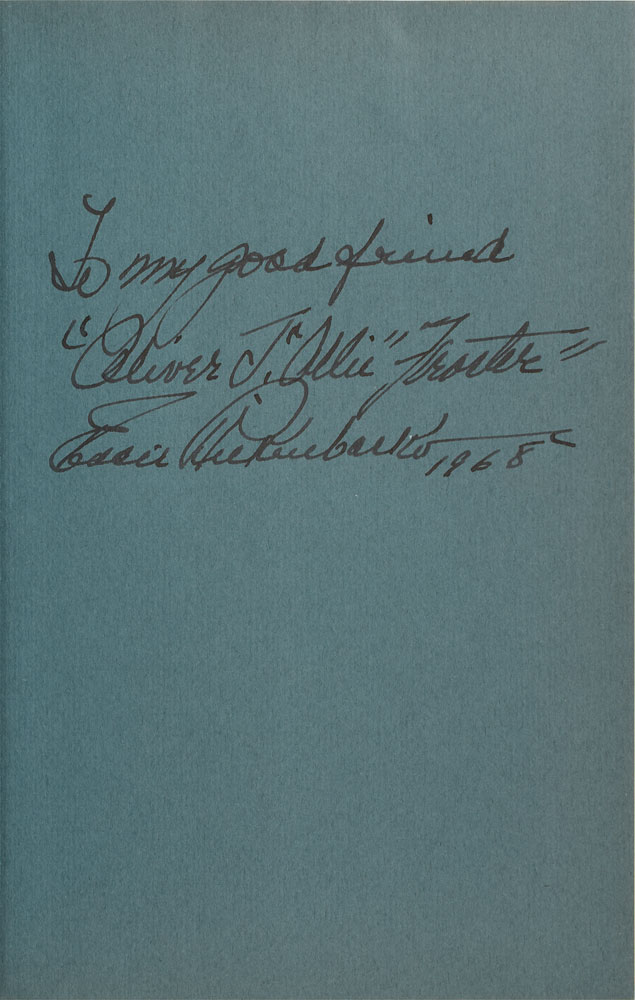 To my good friend
"Oliver J. "Ollie" Troster"
Eddie Rickenbacker 1968